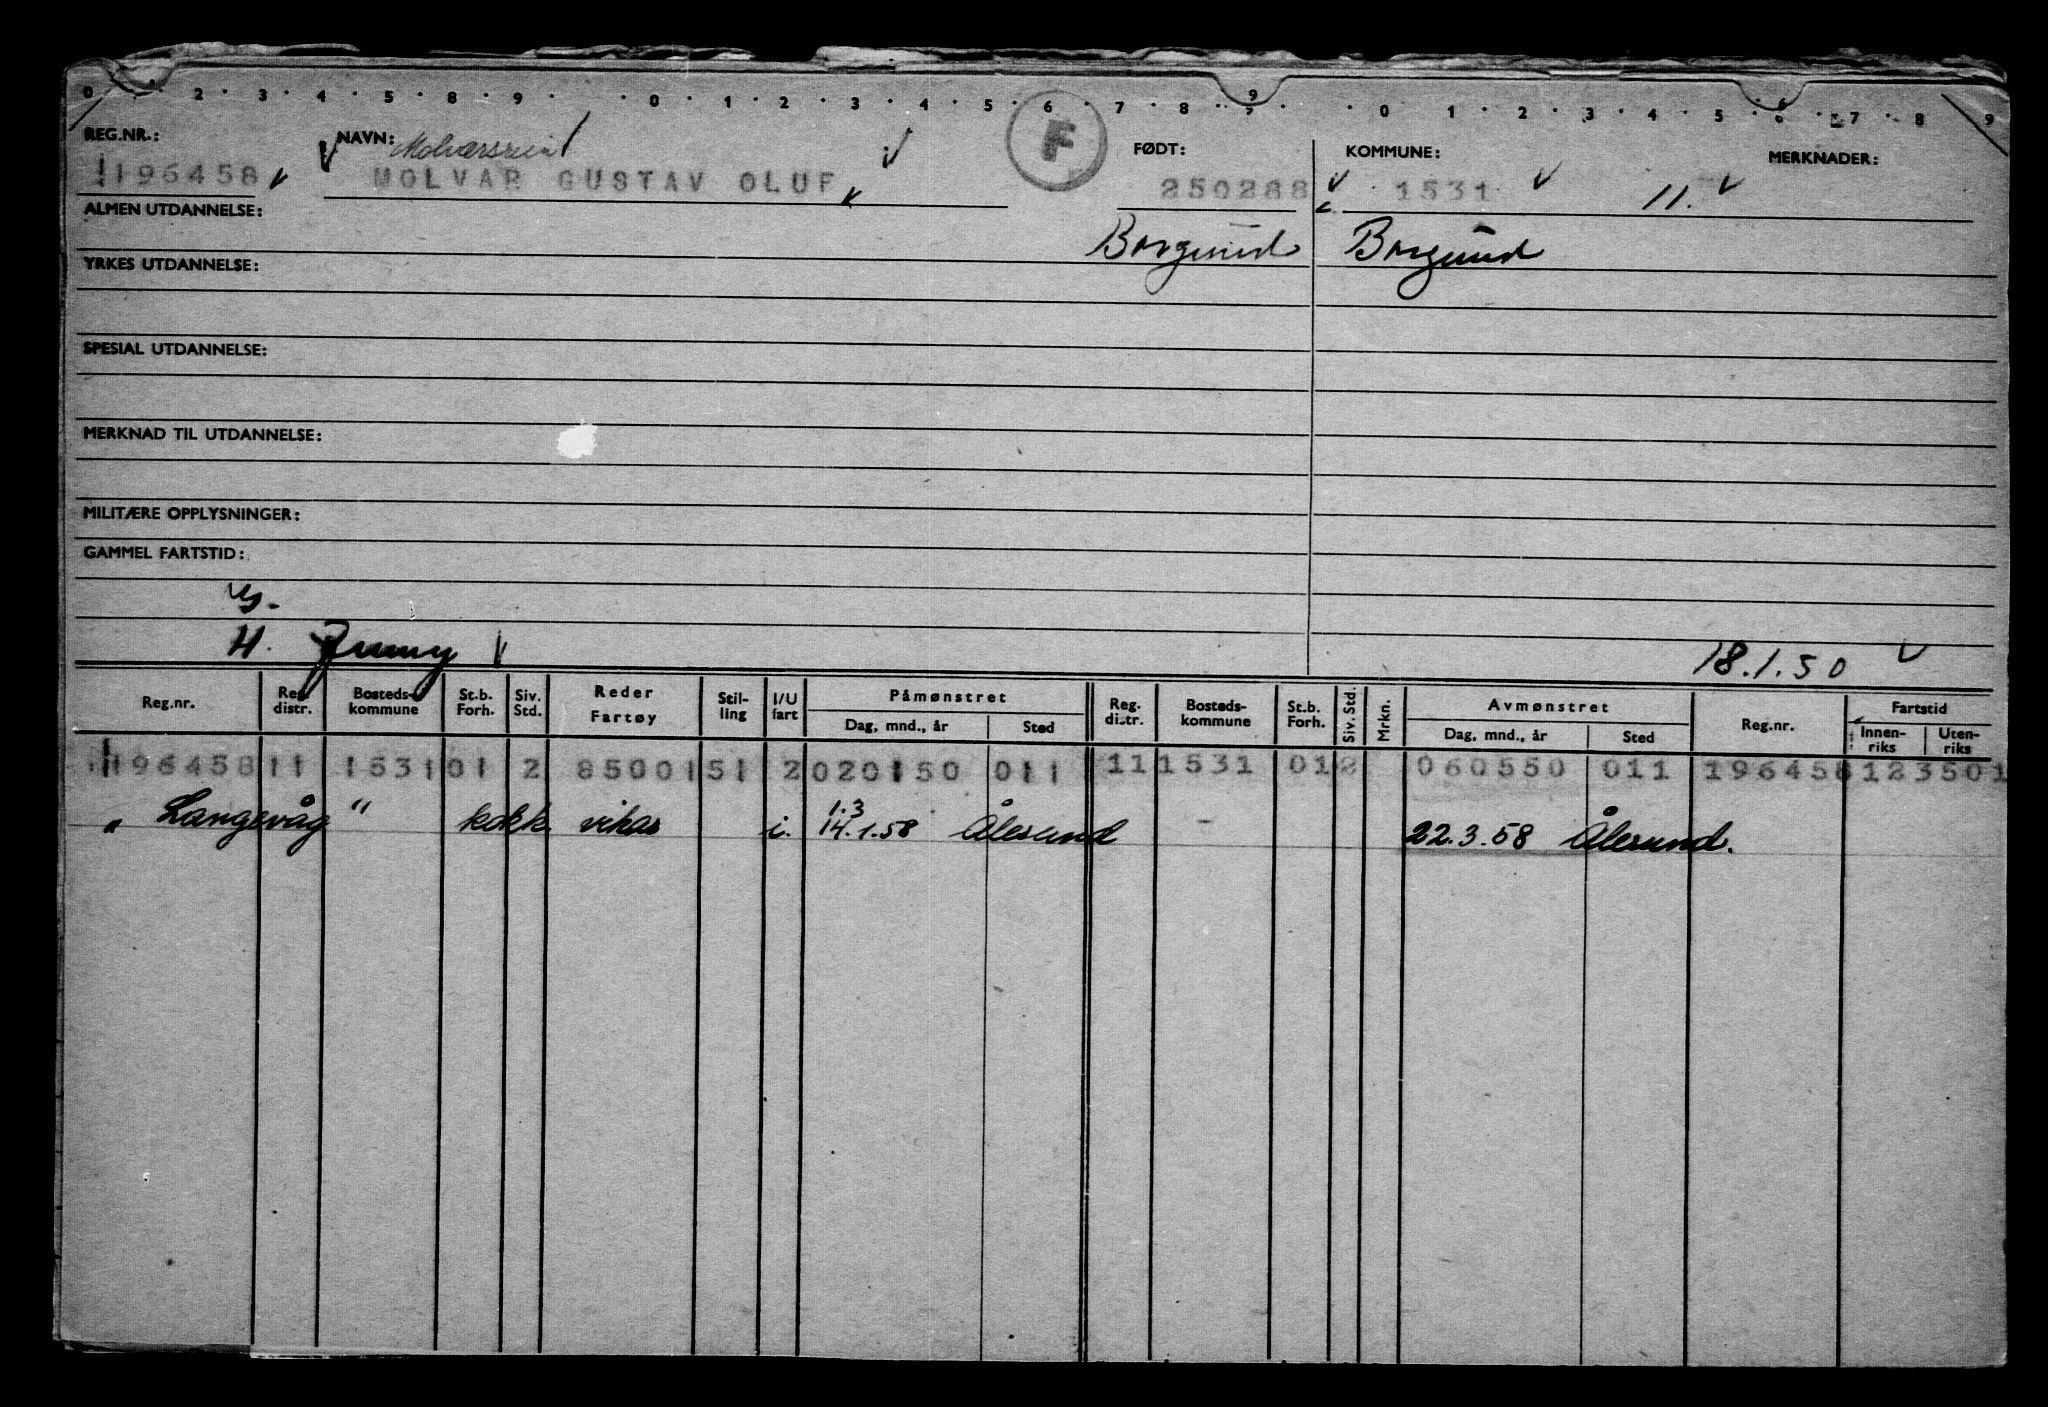 0 . . 2 . 3 . 4 . 5 . 8 . 9 . . 0 . 1 . 2 . 3 . 4 . 5 . 6 . 7 . 8 . 9 . . 0 . 1 . 2 . 3 . 4 . 5 . 6 . 7 . 8 . 9
REG.NR.: NAVN: F FØDT: KOMMUNE: MERKNADER:
196458 MOLVÆR GUSTAV OLUF 250288 1531 11.
ALMEN UTDANNELSE: Borgund Borgund
YRKES UTDANNELSE:
SPESIAL UTDANNELSE:
MERKNAD TIL UTDANNELSE:
MILITÆRE OPPLYSNINGER:
GAMMEL FARTSTID:
H. 18.1.50
Reg.nr. Reg. distr. Bosteds-kommune St.b. Forh. Siv. Std. Reder Fartøy Stil-ling I/U fart Påmønstret Dag, mnd., år Sted Reg. distr. Bosteds-kommune St.b. Forh. Siv. Std. Mrkn. Avmønstret Dag, mnd., år Sted Reg.nr. Fartstid Innen-riks Uten-riks
196458 11 1531 01 2 85001 51 2 020150 011 11 1531 01 2 060550 011 196458 123501
1.3
" Langevåg " kokk vikas i. 14.1.58 Ålesund - 22.3.58 Ålesund.